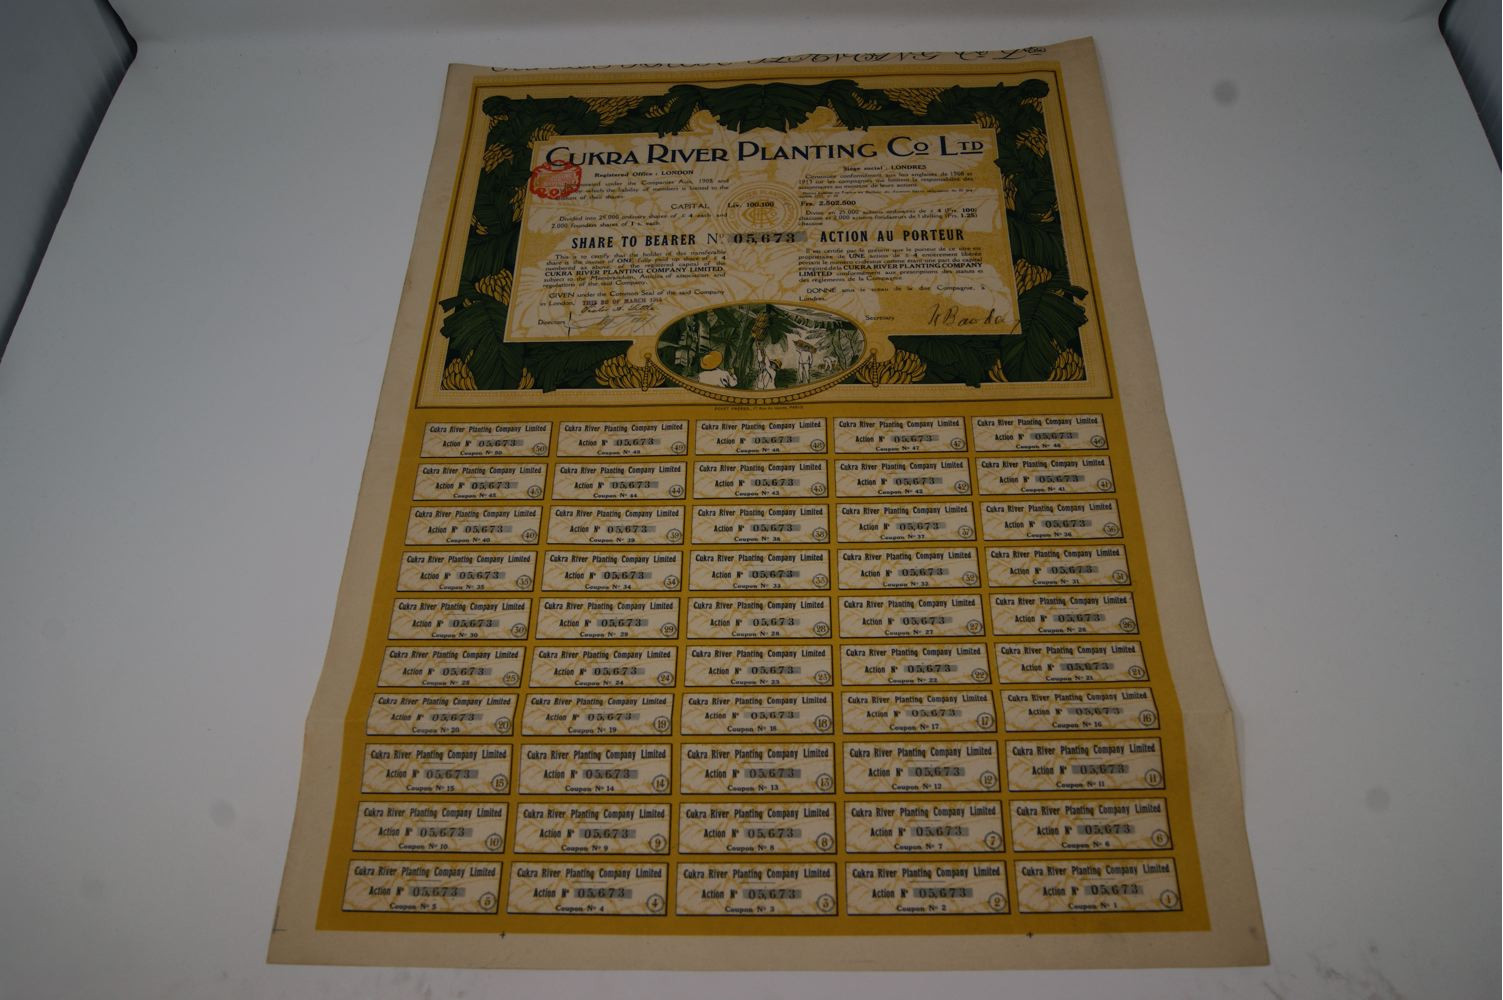 CUKRA RIVER PLANTING Co LTD
Registered Office : LONDON
under the Companies Acts, 1908 and
which the liability of members is limited to the
of their shares
Siège social : LONDRES
Constituée conformément aux lois anglaises de 1908 et
1913 sur les compagnies qui limitent la responsabilité des
actionnaires au montant de leurs actions
CAPITAL Liv. 100.100 Frs. 2.502.500
Divided into 25.000 ordinary shares of £ 4 each and
2.000 founders shares of 1 s. each
Divisé en 25.000 actions ordinaires de £ 4 (Frs. 100)
chacune et 2.000 actions fondateurs de 1 shilling (Frs. 1.25)
chacune
SHARE TO BEARER No 05,673 ACTION AU PORTEUR
This is to certify that the holder of this transferable
share is the owner of ONE fully paid up share of £ 4
numbered as above, of the registered capital of the
CUKRA RIVER PLANTING COMPANY LIMITED,
subject to the Memorandum, Articles of association and
regulations of the said Company.
GIVEN under the Common Seal of the said Company
in London, OF MARCH 1914
Il est certifié par le présent que le porteur de ce titre est
propriétaire de UNE action de £ 4 entièrement libérée
portant le numéro ci-dessus comme étant une part du capital
enregistré de la CUKRA RIVER PLANTING COMPANY
LIMITED conformément aux prescriptions des statuts et
des règlements de la Compagnie.
DONNÉ sous le sceau de la dite Compagnie, à
Londres,
Directors
Secretary
Cukra River Planting Company Limited Cukra River Planting Company Limited Cukra River Planting Company Limited Cukra River Planting Company Limited Cukra River Planting Company Limited
Action No 05,673 Action No 05,673 Action No 05,673 Action No 05,673 Action No 05,673
Coupon No 50 50 Coupon No 49 49 Coupon No 48 48 Coupon No 47 47 Coupon No 46 46
Cukra River Planting Company Limited Cukra River Planting Company Limited Cukra River Planting Company Limited Cukra River Planting Company Limited Cukra River Planting Company Limited
Action No 05,673 Action No 05,673 Action No 05,673 Action No 05,673 Action No 05,673
Coupon No 45 45 Coupon No 44 44 Coupon No 43 43 Coupon No 42 42 Coupon No 41 41
Cukra River Planting Company Limited Cukra River Planting Company Limited Cukra River Planting Company Limited Cukra River Planting Company Limited Cukra River Planting Company Limited
Action No 05,673 Action No 05,673 Action No 05,673 Action No 05,673 Action No 05,673
Coupon No 40 40 Coupon No 39 39 Coupon No 38 38 Coupon No 37 37 Coupon No 36 36
Cukra River Planting Company Limited Cukra River Planting Company Limited Cukra River Planting Company Limited Cukra River Planting Company Limited Cukra River Planting Company Limited
Action No 05,673 Action No 05,673 Action No 05,673 Action No 05,673 Action No 05,673
Coupon No 35 35 Coupon No 34 34 Coupon No 33 33 Coupon No 32 32 Coupon No 31 31
Cukra River Planting Company Limited Cukra River Planting Company Limited Cukra River Planting Company Limited Cukra River Planting Company Limited Cukra River Planting Company Limited
Action No 05,673 Action No 05,673 Action No 05,673 Action No 05,673 Action No 05,673
Coupon No 30 30 Coupon No 29 29 Coupon No 28 28 Coupon No 27 27 Coupon No 26 26
Cukra River Planting Company Limited Cukra River Planting Company Limited Cukra River Planting Company Limited Cukra River Planting Company Limited Cukra River Planting Company Limited
Action No 05,673 Action No 05,673 Action No 05,673 Action No 05,673 Action No 05,673
Coupon No 25 25 Coupon No 24 24 Coupon No 23 23 Coupon No 22 22 Coupon No 21 21
Cukra River Planting Company Limited Cukra River Planting Company Limited Cukra River Planting Company Limited Cukra River Planting Company Limited Cukra River Planting Company Limited
Action No 05,673 Action No 05,673 Action No 05,673 Action No 05,673 Action No 05,673
Coupon No 20 20 Coupon No 19 19 Coupon No 18 18 Coupon No 17 17 Coupon No 16 16
Cukra River Planting Company Limited Cukra River Planting Company Limited Cukra River Planting Company Limited Cukra River Planting Company Limited Cukra River Planting Company Limited
Action No 05,673 Action No 05,673 Action No 05,673 Action No 05,673 Action No 05,673
Coupon No 15 15 Coupon No 14 14 Coupon No 13 13 Coupon No 12 12 Coupon No 11 11
Cukra River Planting Company Limited Cukra River Planting Company Limited Cukra River Planting Company Limited Cukra River Planting Company Limited Cukra River Planting Company Limited
Action No 05,673 Action No 05,673 Action No 05,673 Action No 05,673 Action No 05,673
Coupon No 10 10 Coupon No 9 9 Coupon No 8 8 Coupon No 7 7 Coupon No 6 6
Cukra River Planting Company Limited Cukra River Planting Company Limited Cukra River Planting Company Limited Cukra River Planting Company Limited Cukra River Planting Company Limited
Action No 05,673 Action No 05,673 Action No 05,673 Action No 05,673 Action No 05,673
Coupon No 5 5 Coupon No 4 4 Coupon No 3 3 Coupon No 2 2 Coupon No 1 1